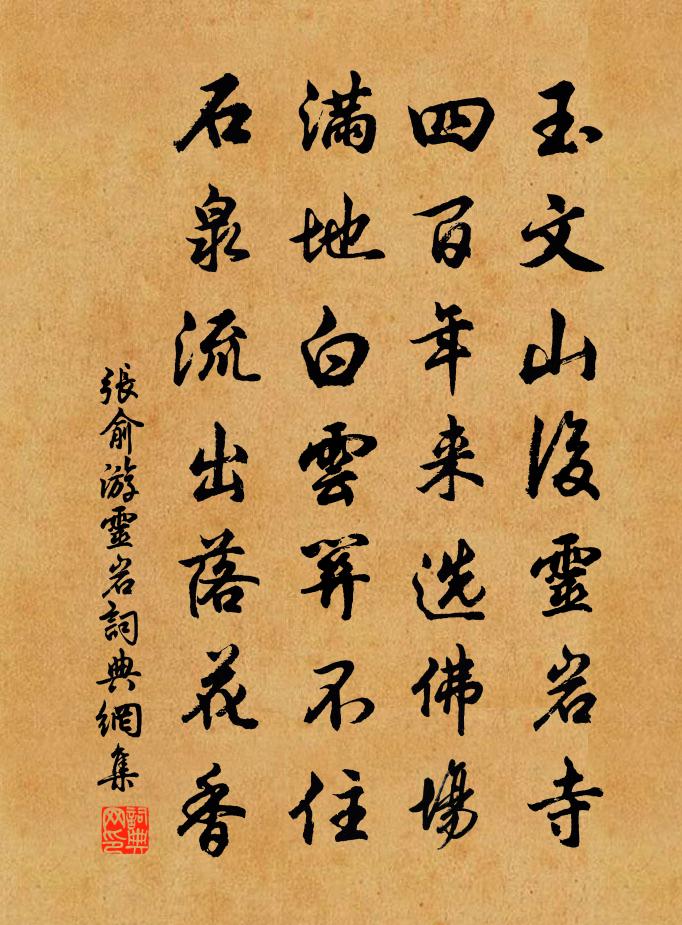 玉文山後靈岩寺
四百年来选佛場
滿地白雲關不住
石泉流出落花香
張俞游靈岩詞典網集
詞典网印